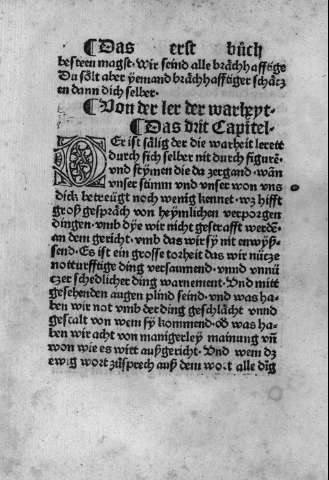 ¶Das erst bůch
besteen magst. Wir seind alle brächhafftig.
Du sölt aber yemand brächhafftiger schäcz
en dann dich selber.
¶Von der ler der warheyt.
¶Das drit Capitel.
Er ist sälig der die warheit lerett
durch sich selber nit durch figurẽ.
vnd stymen die da zergand. wañ
vnser stimm vnd vnser won vns
dick betreügt noch wenig kennet. wz hilfft
groß gespräch von heymlichen verporgen
dingen. vmb dye wir nicht gestrafft werdẽ.
an dem gericht. vmb das wir sy nit
send. Es ist ein grosse torheit das wir nücze
notturfftige ding versaumend. vnnd vnnü
czer schedlicher ding warnement. Vnd mitt
gesehenden augen plind seind. vnd was ha
ben wir not vmb der ding geschlächt vnnd
gestalt von wem sy kommend. ob was ha
ben wir acht von manigerley mainung vñ
won wie es wirt außgericht. Vnd wem dz
ewig wort zůsprech auß dem wort alle dig